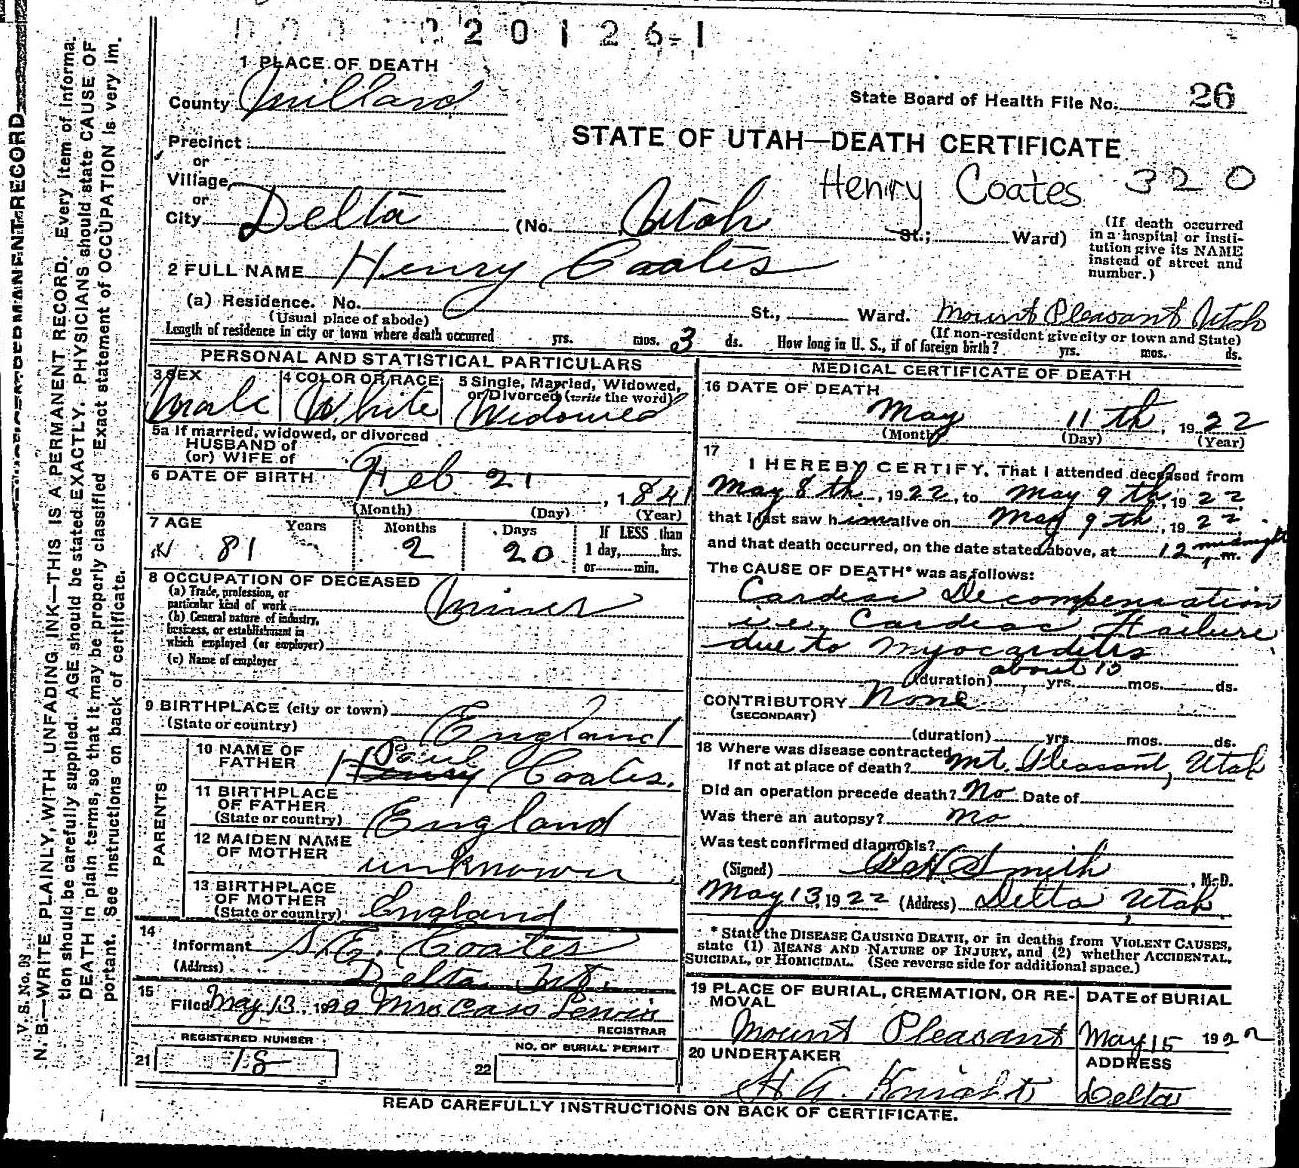 2 2 0 1 2 6-1
1 PLACE OF DEATH
County Millard
State Board of Health File No. 26
Precinct
or
Village
or
STATE OF UTAH—DEATH CERTIFICATE
Henry Coates 320
City Delta (No. Utah St.; Ward)
(If death occurred
in a hospital or insti-
tution give its NAME
instead of street and
number.)
2 FULL NAME Henry Coates
(a) Residence. No. St., Ward. Mount Pleasant Utah
(Usual place of abode) (If non-resident give city or town and State)
Length of residence in city or town where death occurred yrs. mos. 3 ds. How long in U. S., if of foreign birth? yrs. mos. ds.
PERSONAL AND STATISTICAL PARTICULARS
3 SEX
Male
4 COLOR OR RACE
White
5 Single, Married, Widowed,
or Divorced (write the word)
Widowed
5a If married, widowed, or divorced
HUSBAND of
(or) WIFE of
6 DATE OF BIRTH Feb 21, 1841
(Month) (Day) (Year)
7 AGE Years Months Days If LESS than
81 2 20 1 day, hrs.
or min.
8 OCCUPATION OF DECEASED
(a) Trade, profession, or
particular kind of work Miner
(b) General nature of industry,
business, or establishment in
which employed (or employer)
(c) Name of employer
9 BIRTHPLACE (city or town)
(State or country) England
PARENTS
10 NAME OF
FATHER Paul Henry Coates.
11 BIRTHPLACE
OF FATHER
(State or country) England
12 MAIDEN NAME
OF MOTHER unknown
13 BIRTHPLACE
OF MOTHER
(State or country) England
14
Informant S. E. Coates
(Address) Delta Ut.
15
Filed May 13, 1922 Mrs Cass Lewis
REGISTRAR
REGISTERED NUMBER
21 18
NO. OF BURIAL PERMIT
22
MEDICAL CERTIFICATE OF DEATH
16 DATE OF DEATH
May 11th, 1922
(Month) (Day) (Year)
17
I HEREBY CERTIFY, That I attended deceased from
May 8th, 1922, to May 9th, 1922
that I last saw him alive on May 9th, 1922
and that death occurred, on the date stated above, at 12 midnight m.
The CAUSE OF DEATH* was as follows:
Cardiac Decompensation
i.e. Cardiac Failure
due to Myocarditis
about 10
(duration) yrs. mos. ds.
CONTRIBUTORY None
(SECONDARY)
(duration) yrs. mos. ds.
18 Where was disease contracted
If not at place of death? Mt. Pleasant, Utah
Did an operation precede death? No Date of
Was there an autopsy? No
Was test confirmed diagnosis?
(Signed) Smith, M.D.
May 13, 1922 (Address) Delta, Utah
* State the DISEASE CAUSING DEATH, or in deaths from VIOLENT CAUSES,
state (1) MEANS AND NATURE OF INJURY, and (2) whether ACCIDENTAL,
SUICIDAL, or HOMICIDAL. (See reverse side for additional space.)
19 PLACE OF BURIAL, CREMATION, OR RE-
MOVAL
Mount Pleasant
DATE of BURIAL
May 15 1922
20 UNDERTAKER
H A. Knight
ADDRESS
Delta
READ CAREFULLY INSTRUCTIONS ON BACK OF CERTIFICATE.
V. S. No. 98
N. B.—WRITE PLAINLY, WITH UNFADING INK—THIS IS A PERMANENT RECORD. Every item of informa-
tion should be carefully supplied. AGE should be stated EXACTLY. PHYSICIANS should state CAUSE OF
DEATH in plain terms, so that it may be properly classified. Exact statement of OCCUPATION is very im-
portant. See instructions on back of certificate.